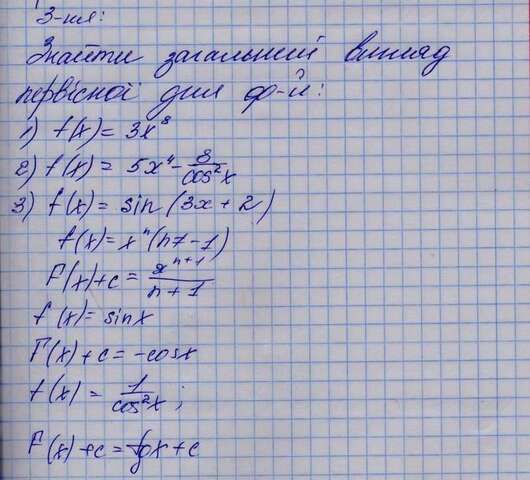 З-ня:
Знайти загальний вигляд
первісної для ф-й:
1) f(x) = 3x⁸
2) f(x) = 5x⁴ - 8/cos²x
3) f(x) = sin(3x + 2)
f(x) = xⁿ (n≠ -1)
F(x)+c = xⁿ⁺¹/n+1
f(x) = sinx
F(x)+c = -cosx
f(x) = 1/cos²x ;
F(x)+c = tgx + c